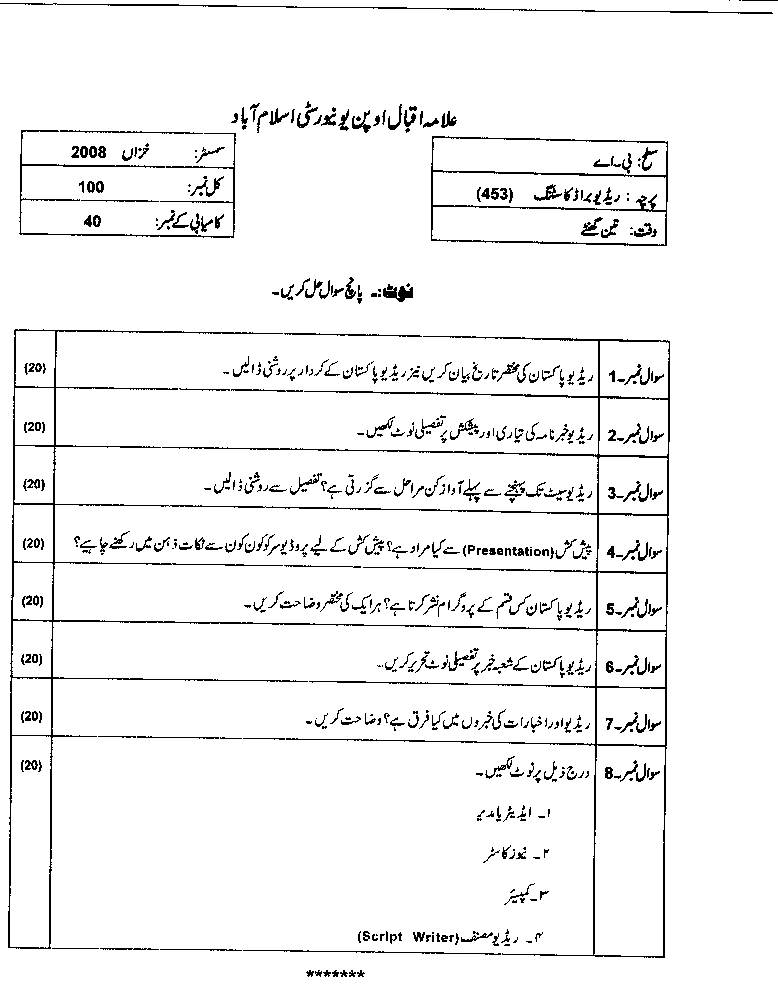 علامہ اقبال اوپن یونیورسٹی اسلام آباد
سطح: بی۔اے
پرچہ: ریڈیو براڈکاسٹنگ (453)
وقت: تین گھنٹے
سمسٹر: خزاں 2008
کل نمبر: 100
کامیابی کے نمبر: 40
نوٹ:۔ پانچ سوال حل کریں۔
سوال نمبر۔1 ریڈیو پاکستان کی مختصر تاریخ بیان کریں نیز ریڈیو پاکستان کے کردار پر روشنی ڈالیں۔ (20)
سوال نمبر۔2 ریڈیو خبرنامہ کی تیاری اور پیشکش پر تفصیلی نوٹ لکھیں۔ (20)
سوال نمبر۔3 ریڈیو سیٹ تک پہنچنے سے پہلے آواز کن مراحل سے گزرتی ہے؟ تفصیل سے روشنی ڈالیں۔ (20)
سوال نمبر۔4 پیش کش (Presentation) سے کیا مراد ہے؟ پیش کش کے لیے پروڈیوسر کو کون کون سے نکات ذہن میں رکھنے چاہیے؟ (20)
سوال نمبر۔5 ریڈیو پاکستان کس قسم کے پروگرام نشر کرتا ہے؟ ہر ایک کی مختصر وضاحت کریں۔ (20)
سوال نمبر۔6 ریڈیو پاکستان کے شعبہ خبر پر تفصیلی نوٹ تحریر کریں۔ (20)
سوال نمبر۔7 ریڈیو اور اخبارات کی خبروں میں کیا فرق ہے؟ وضاحت کریں۔ (20)
سوال نمبر۔8 درج ذیل پر نوٹ لکھیں۔ (20)
۱۔ ایڈیٹر یا مدیر
۲۔ نیوز کاسٹر
۳۔ کمپیئر
۴۔ ریڈیو مصنف (Script Writer)
*******